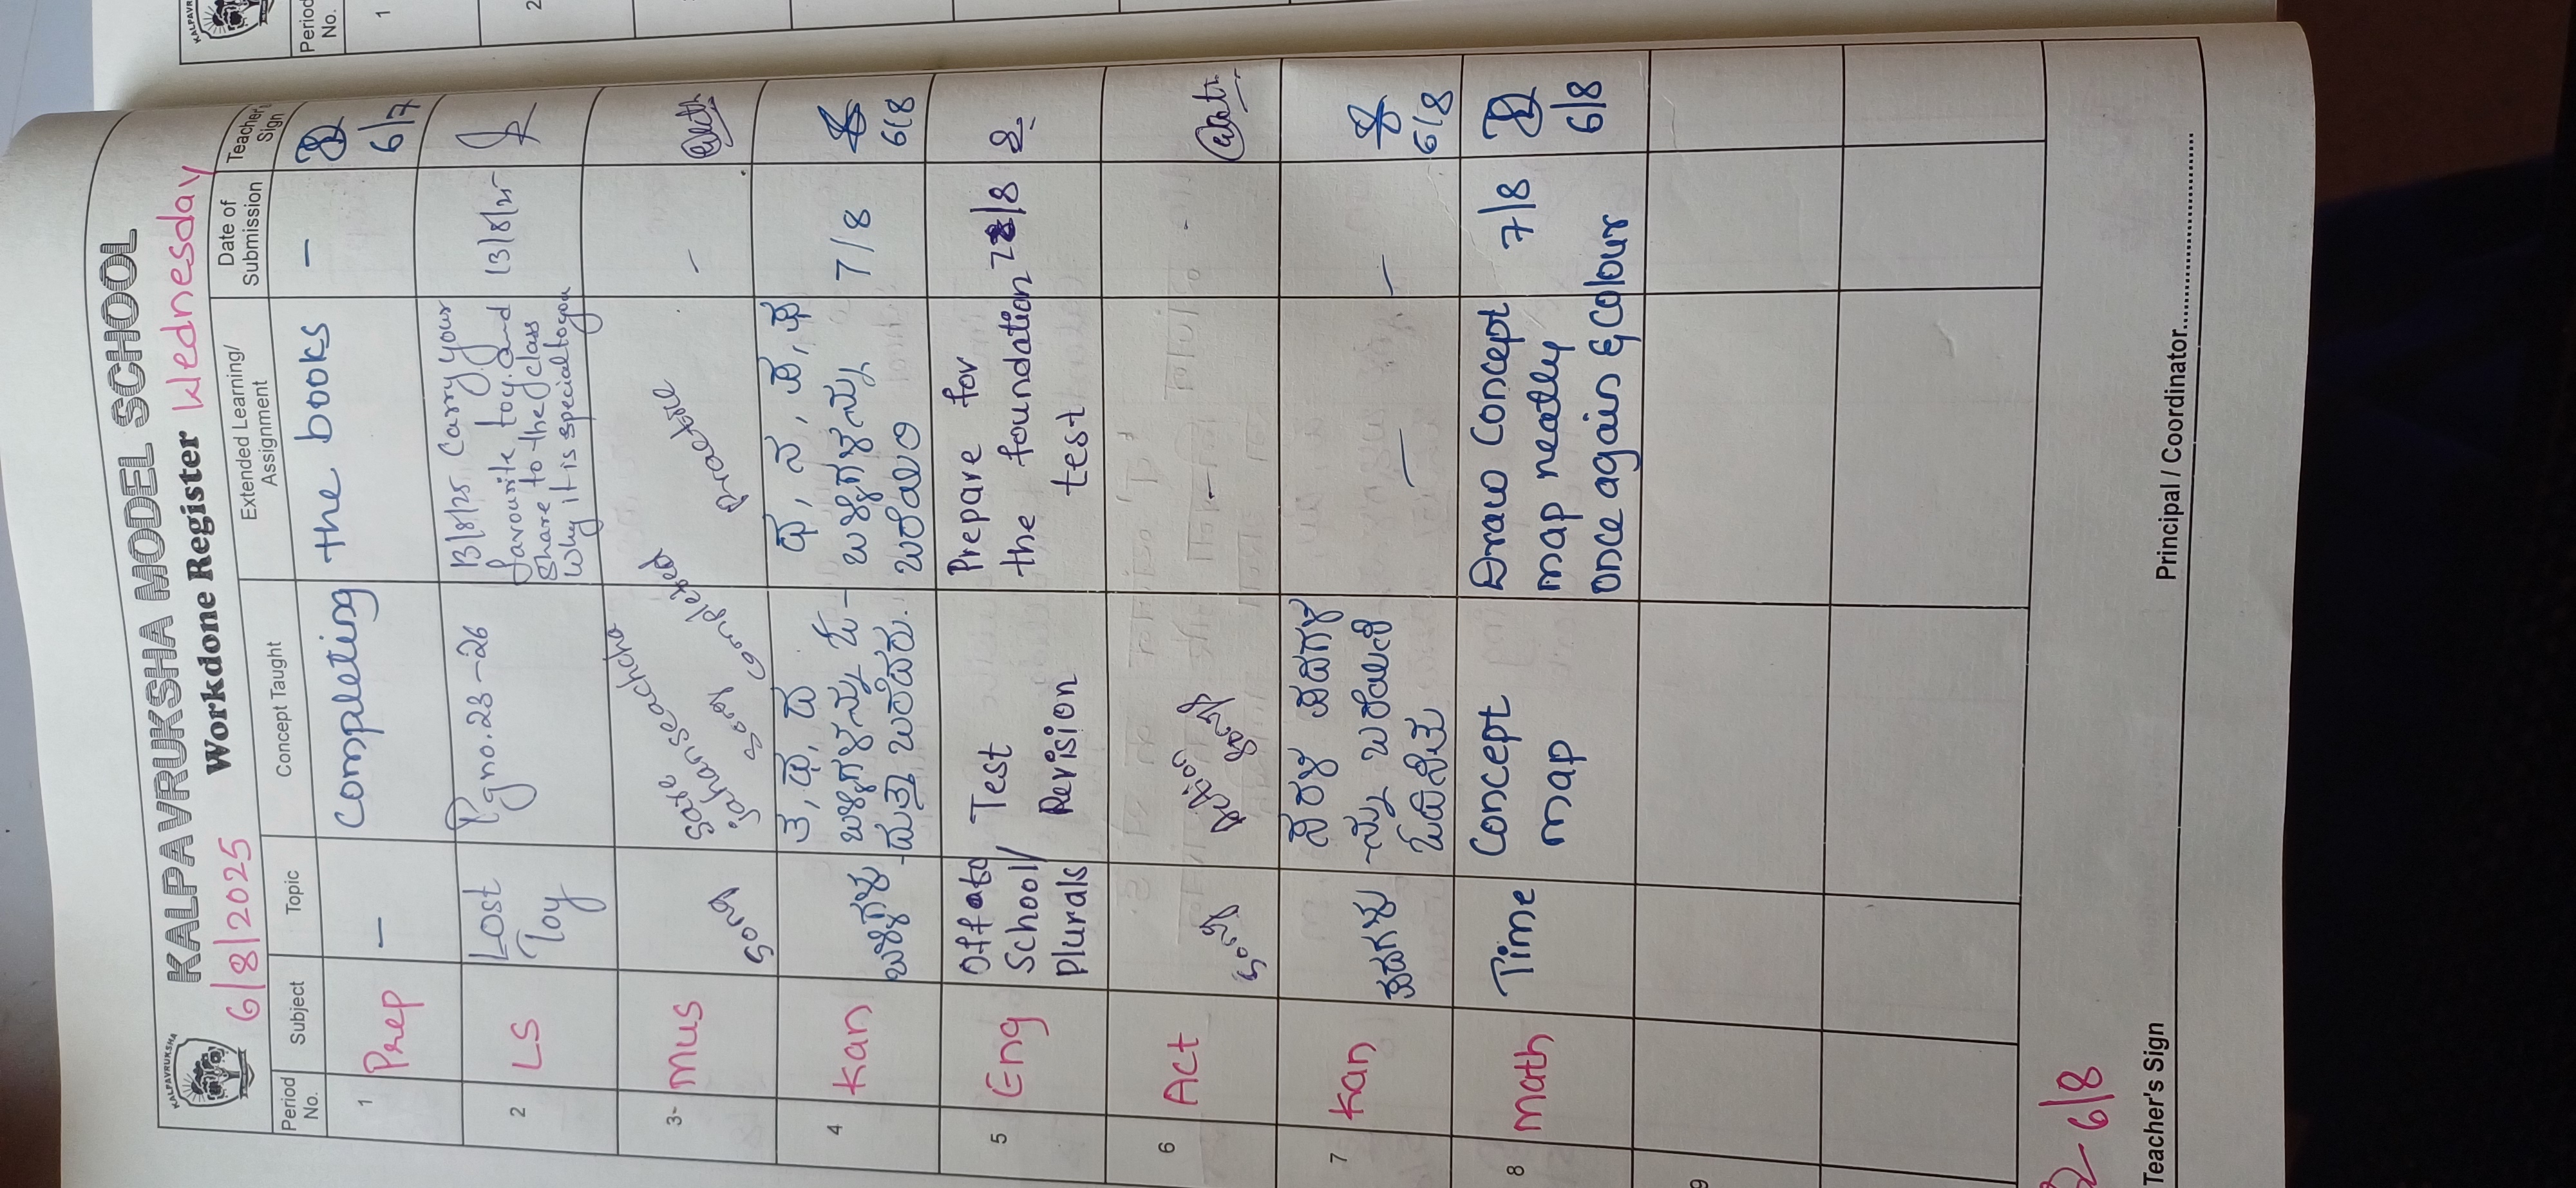 KALPAVRUKSHA
KALPAVRUKSHA MODEL SCHOOL
6/8/2025 Workdone Register Wednesday
Period No. Subject Topic Concept Taught Extended Learning/ Assignment Date of Submission Teacher Sign
1 Prep – Completing the books – 6/7
2 LS Lost Toy Pgno.23-26 13/8/25 Carry your favourite toy and Share to the class Why it is special to you 13/8/25
3- Mus song completed practise –
song
4 Kan ಬಳ್ಳಿಗಳು ತ, ಥ, ದ ಬಳ್ಳಿಗಳನ್ನು ಬರೆಯಿರಿ 7/8 6/8
5 Eng Off to School/ Plurals Test Revision Prepare for the foundation test /8
6 Act song Action song – -
7 Kan ಪದಗಳು ಸರಳ ಪದಗಳ -ನ್ನು — – 6/8
8 Math Time Concept map Draw Concept map neatly once again & colour 7/8 6/8
9
6/8
Teacher's Sign Principal / Coordinator..............................
KALPAVR
Period No.
1
2